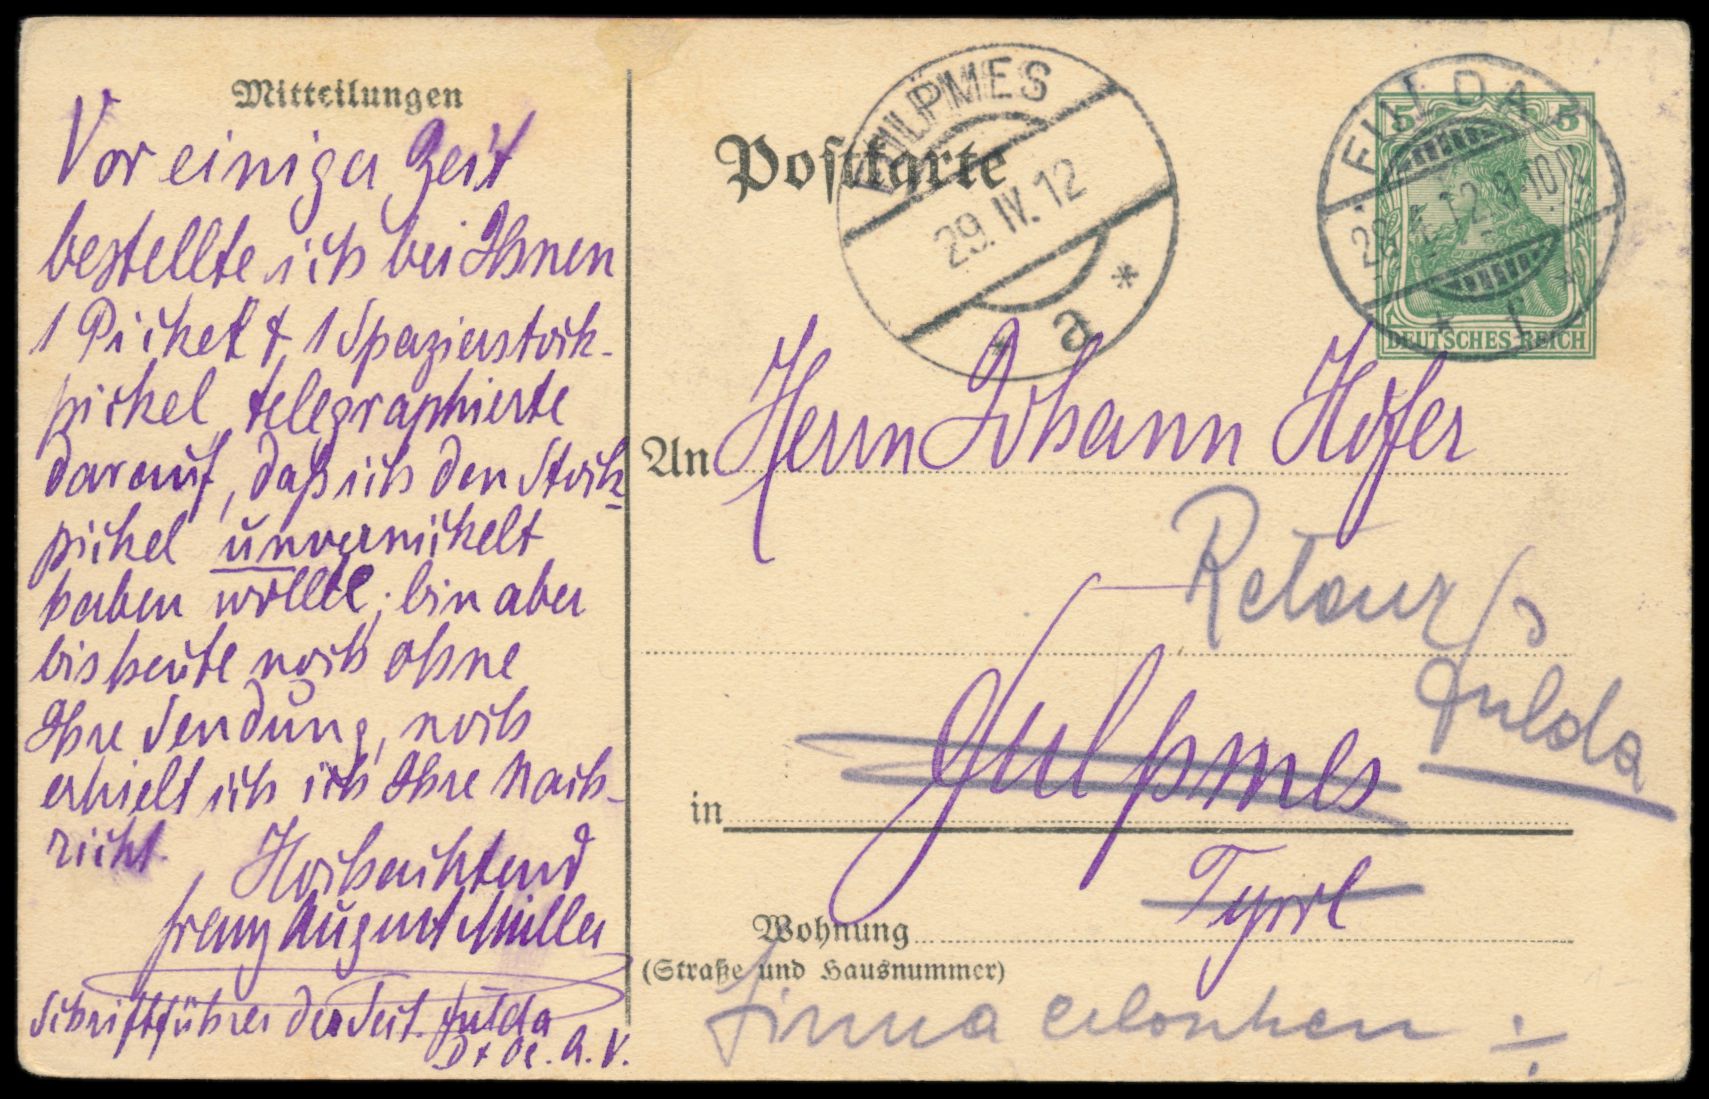 Mitteilungen
Vor einiger Zeit
bestellte ich bei Ihnen
1 Pickel & 1 Spazierstock-
pickel, telegraphierte
darauf, daß ich den Stock-
pickel unvernickelt
haben wolle; bin aber
bis heute noch ohne
Ihre Sendung, noch
erhielt ich Ihre Nach-
richt.
Hochachtend
Franz August Müller
Schriftführer der Sect. Fulda
D. & Oe. A. V.
Postkarte
FULPMES
29. IV. 12
* a *
FULDA 2
28.4.12.9-10
* f *
5 5
DEUTSCHES REICH
An Herrn Johann Hofer
Retour
Fulda
in Fulpmes
Tyrol
Wohnung
(Straße und Hausnummer)
Firma erloschen